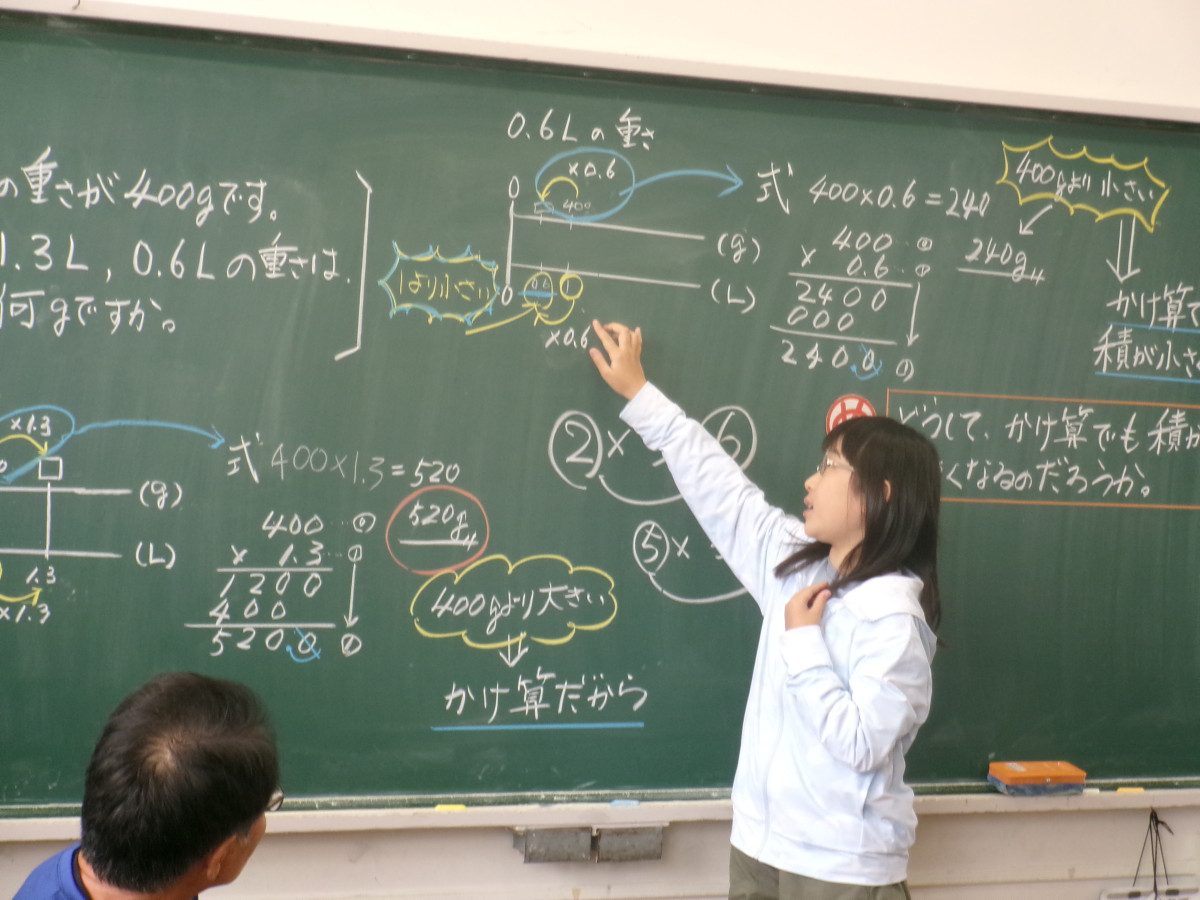 の重さが400gです。
1.3L, 0.6Lの重さは
何gですか。
×1.3
(g)
(L)
1.3
×1.3
式 400×1.3=520
400
× 1.3
1200
400
5200
520g
400gより大きい
かけ算だから
0.6Lの重さ
×0.6
0
400
(g)
1より小さい
0
1
(L)
×0.6
式 400×0.6=240
400
× 0.6
2400
000
2400
240g
400gより小さい
かけ算で
積が小さ
②×
6
⑤×
どうして、かけ算でも積が
くなるのだろうか。